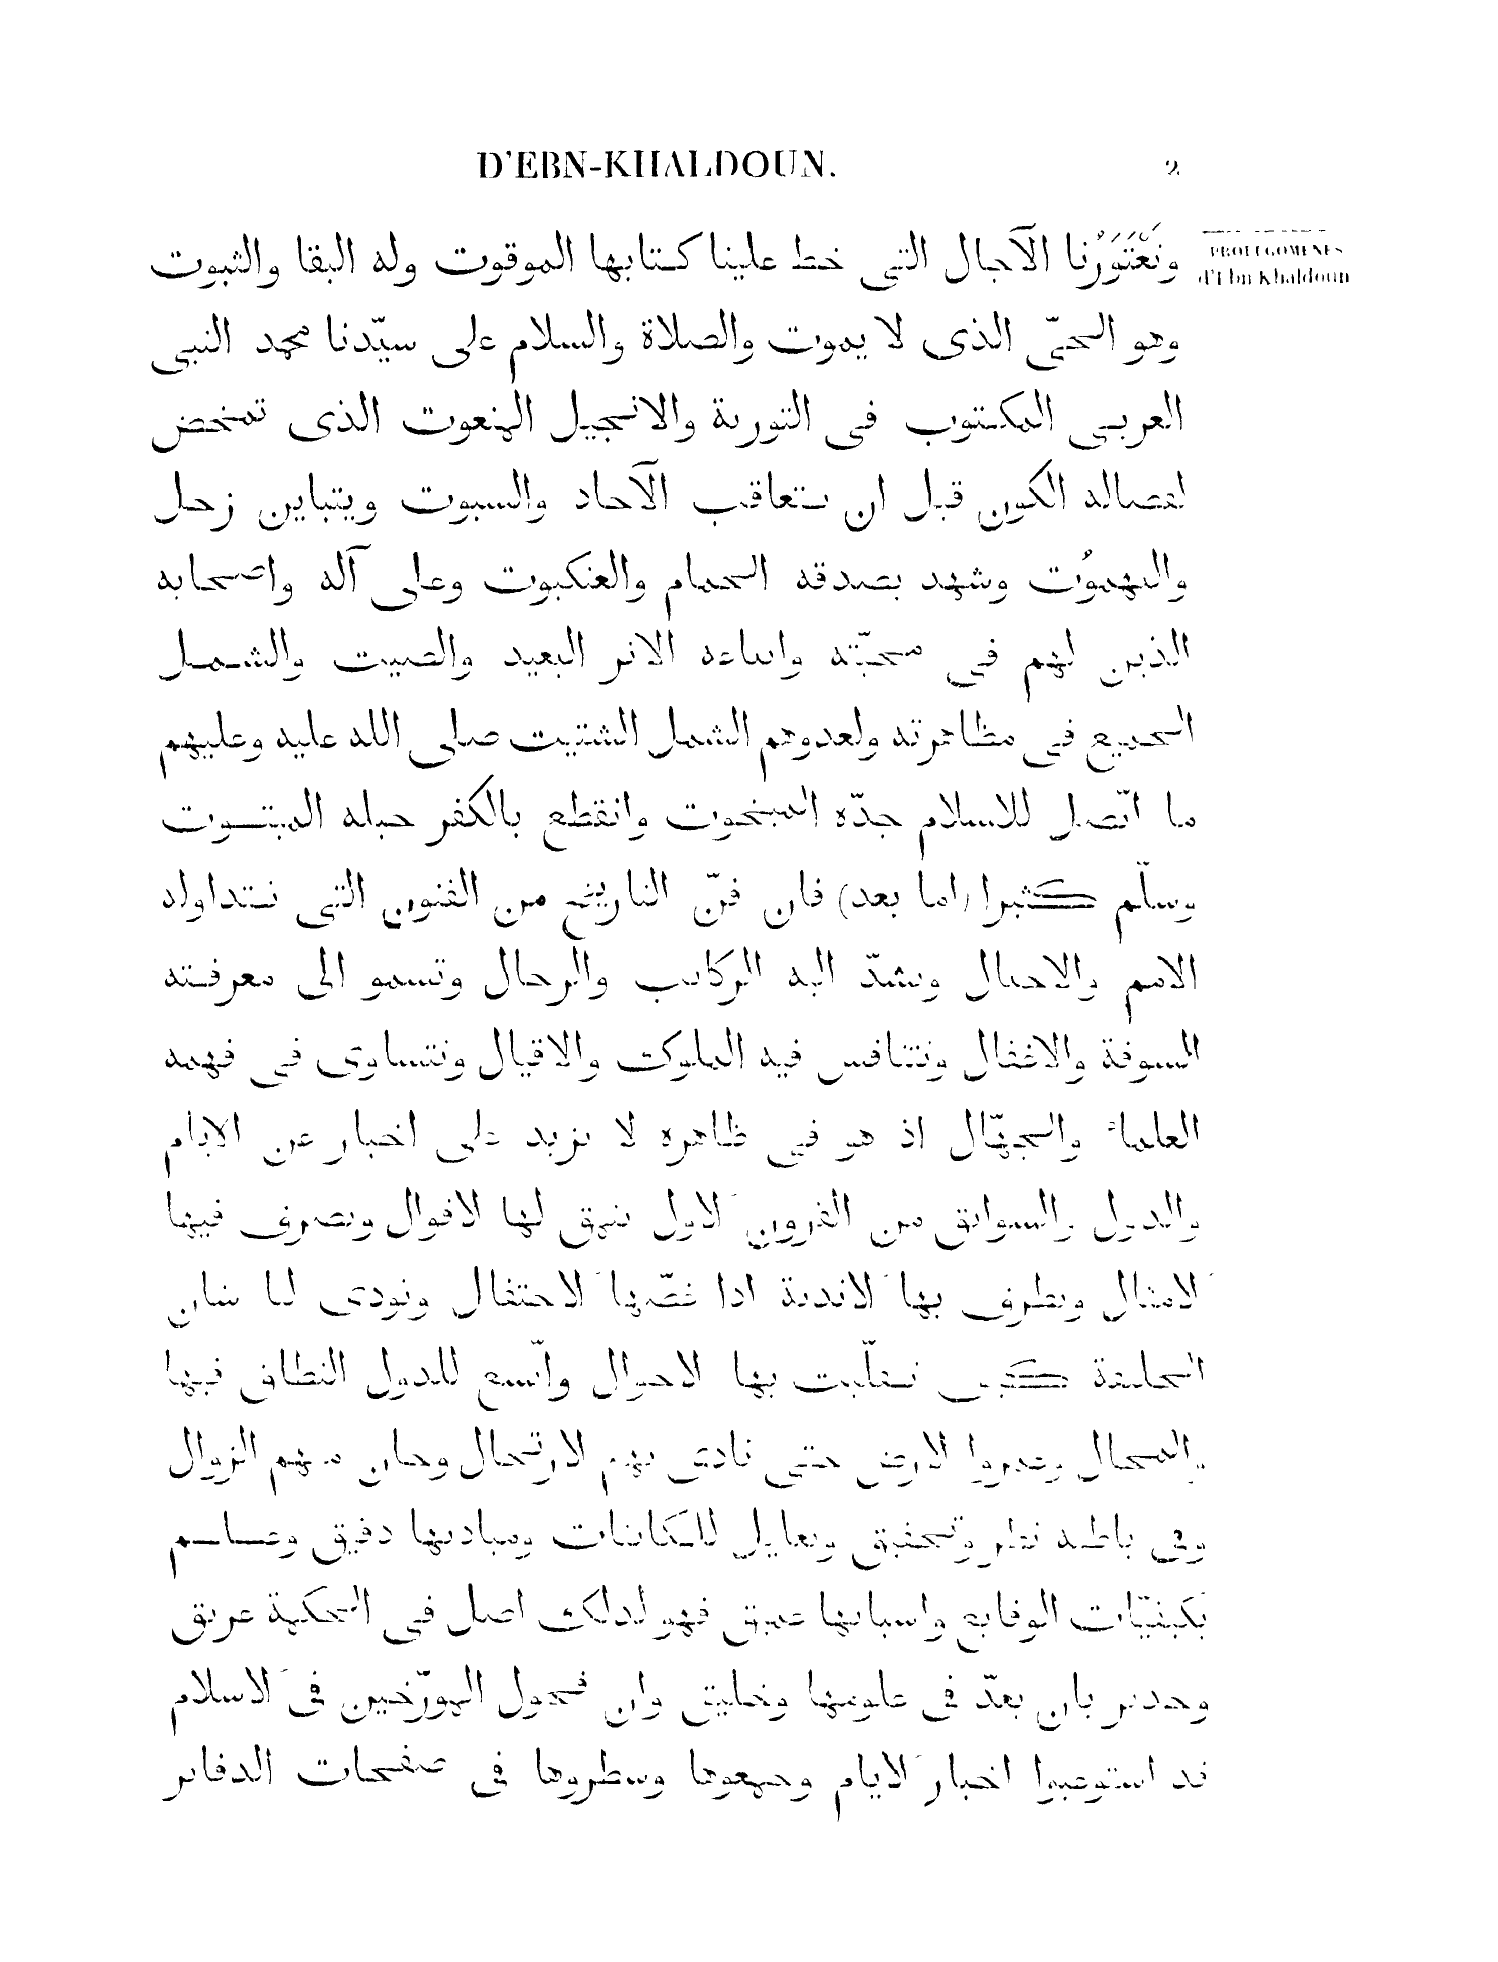 D'EBN-KHALDOUN. 2
PROLÉGOMÈNES
d'Ebn-Khaldoun
وتَعْتَوِرُنا الآجال التى خط علينا كتابها الموقوت وله البقا والثبوت
وهو الحىّ الذى لا يموت والصلاة والسلام على سيّدنا محمد النبى
العربى المكتوب فى التورية والانجيل المنعوت الذى تمخض
لفصاله الكون قبل ان تتعاقب الآحاد والسبوت ويتباين زحل
والبهموُت وشهد بصدقه الحمام والعنكبوت وعلى آله واصحابه
الذين لهم فى محبّته واتباعه الاثر البعيد والصيت والشمل
الجميع فى مظاهرته ولعدوهم الشمل الشتيت صلى الله عليه وعليهم
ما اتّصل للاسلام جدّه المبخوت وانقطع بالكفر حبله المبتوت
وسلّم كثيرا (اما بعد) فان فنّ التاريخ من الفنون التى تتداوله
الامم والاجيال وتشدّ اليه الركايب والرحال وتسمو الى معرفته
السوقة والاغفال وتتنافس فيه الملوك والاقيال وتتساوى فى فهمه
العلماء والجهّال اذ هو فى ظاهره لا يزيد على اخبار عن الايام
والدول والسوابق من القرون َالاول تنمق لها الاقوال وتصرف فيها
َالامثال وتطرف بها َالاندية اذا غصّها َالاحتفال وتودى لنا شان
الخليقة كيف تقلّبت بها الاحوال واتّسع للدول النطاق فيها
والمجال وعمروا الارض حتى نادى بهم الارتحال وحان منهم الزوال
وفى باطنه نظر وتحقيق وتعليل للكائنات ومباديها دقيق وعلم
بكيفيّات الوقايع واسبابها عميق فهو لذلك اصل فى الحكمة عريق
وجدير بان يعدّ فى علومها وخليق وان فحول المورّخين فى َالاسلام
قد استوعبوا اخبار َالايام وجمعوها وسطروها فى صفحات الدفاتر